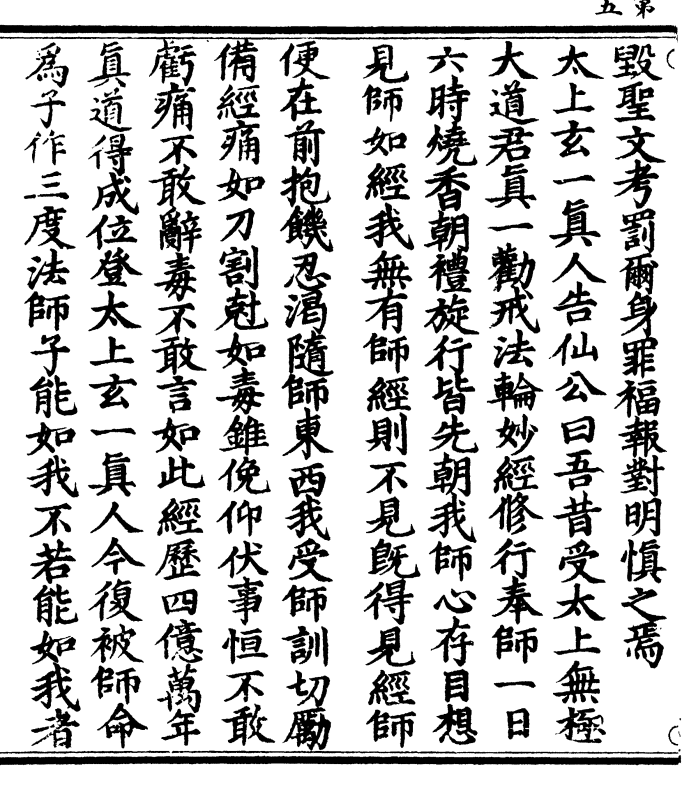 第五
毀聖文考罰爾身罪福報對明慎之焉
太上玄一眞人告仙公曰吾昔受太上無極
大道君眞一勸戒法輪妙經修行奉師一日
六時燒香朝禮旋行皆先朝我師心存目想
見師如經我無有師經則不見旣得見經師
便在前抱饑忍渴隨師東西我受師訓切勵
備經痛如刀割尅如毒錐俛仰伏事恒不敢
虧痛不敢辭毒不敢言如此經歷四億萬年
眞道得成位登太上玄一眞人今復被師命
爲子作三度法師子能如我不若能如我者